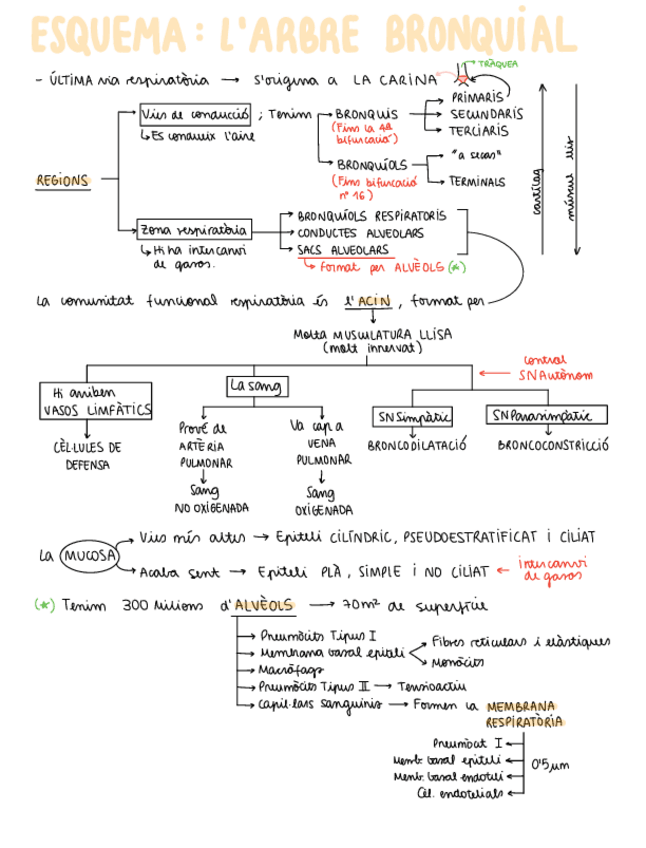 ESQUEMA: L'ARBRE BRONQUIAL
- ÚLTIMA via respiratòria → S'origina a LA CARINA
TRÀQUEA
REGIONS
Vies de conducció ; Tenim
↳ Es condueix l'aire
BRONQUIS
(Fins la 4a
bifurcació)
PRIMARIS
SECUNDARIS
TERCIARIS
BRONQUÍOLS
(Fins bifurcació
nº 16)
"a secas"
TERMINALS
Zona respiratòria
↳ Hi ha intercanvi
de gasos.
BRONQUÍOLS RESPIRATORIS
CONDUCTES ALVEOLARS
SACS ALVEOLARS
↳ Format per ALVÈOLS (*)
cartílag
múscul llis
La comunitat funcional respiratòria és l'ACIN, format per
Molta MUSCULATURA LLISA
(molt innervat)
control
SN Autònom
Hi arriben
VASOS LIMFÀTICS
CÈL·LULES DE
DEFENSA
La sang
Prové de
ARTÈRIA
PULMONAR
Sang
NO OXIGENADA
Va cap a
VENA
PULMONAR
Sang
OXIGENADA
SN Simpàtic
BRONCODILATACIÓ
SN Parasimpàtic
BRONCOCONSTRICCIÓ
La MUCOSA
Vies més altes → Epiteli CILÍNDRIC, PSEUDOESTRATIFICAT i CILIAT
Acaba sent → Epiteli PLÀ, SIMPLE i NO CILIAT ← intercanvi
de gasos
(*) Tenim 300 milions d'ALVÈOLS → 70m² de superfície
Pneumòcits Tipus I
Membrana basal epiteli
Fibres reticulars i elàstiques
Monòcits
Macròfags
Pneumòcits Tipus II → Tensioactiu
Capil·lars sanguinis → Formen la MEMBRANA
RESPIRATÒRIA
Pneumòcit I
Memb. basal epiteli
Memb. basal endoteli
Cèl. endotelials
0'5 µm